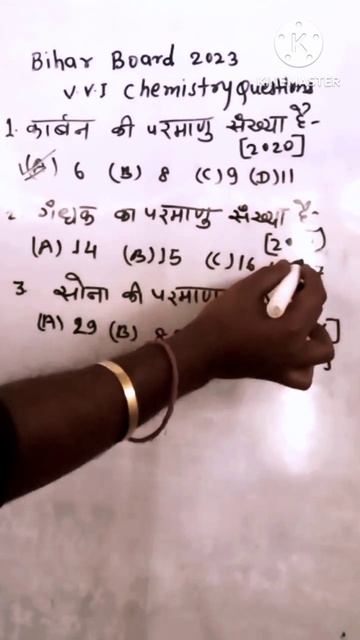 Bihar Board 2023
KINEMASTER
V.V.I Chemistry Questions
1. कार्बन की परमाणु संख्या है-
[2020]
(A) 6 (B) 8 (C) 9 (D) 11
2. गंधक का परमाणु संख्या है-
(A) 14 (B) 15 (C) 16
3. सोना की परमाणु
(A) 29 (B)